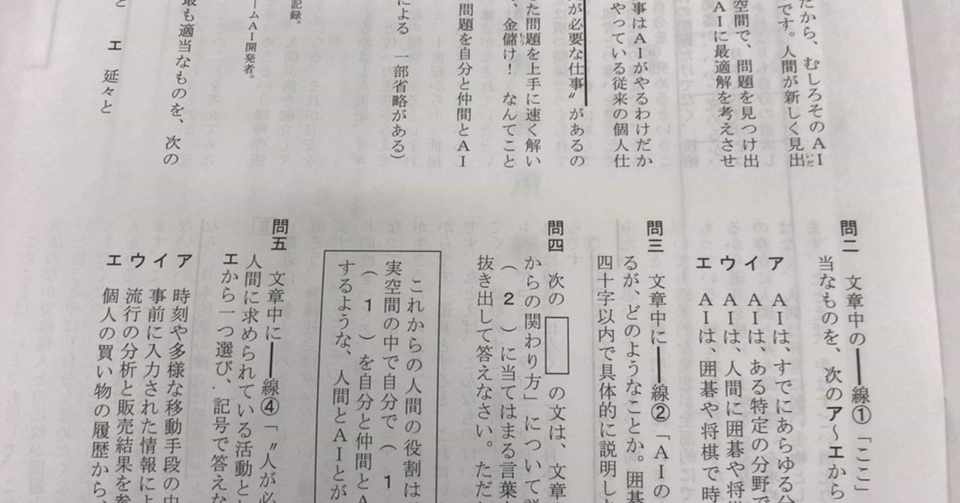 だから、むしろそのAI
です。人間が新しく見出
空間で、問題を見つけ出
AIに最適解を考えさせ
事はAIがやるわけだか
やっている従来の個人仕
が必要な仕事〟があるの
た問題を上手に速く解い
、金儲け! なんてこと
問題を自分と仲間とAI
による 一部省略がある)
記録。
ームAI開発者。
最も適当なものを、次の
エ 延々と
問二 文章中の━━線①「ここ」
当なものを、次のア〜エから
ア AIは、すでにあらゆる分
イ AIは、ある特定の分野で
ウ AIは、人間に囲碁や将
エ AIは、囲碁や将棋で時
問三 文章中に━━線②「AIの
るが、どのようなことか。囲碁
四十字以内で具体的に説明し
問四 次の の文は、文章
からの関わり方」について
(2)に当てはまる言葉
抜き出して答えなさい。ただ
これからの人間の役割は
実空間の中で自分で(1
(1)を自分と仲間とA
するような、人間とAIとが
問五 文章中に━━線④「〝人が必
人間に求められている活動と
エから一つ選び、記号で答えな
ア 時刻や多様な移動手段の中
イ 事前に入力された情報によ
ウ 流行の分析と販売結果を参
エ 個人の買い物の履歴から、